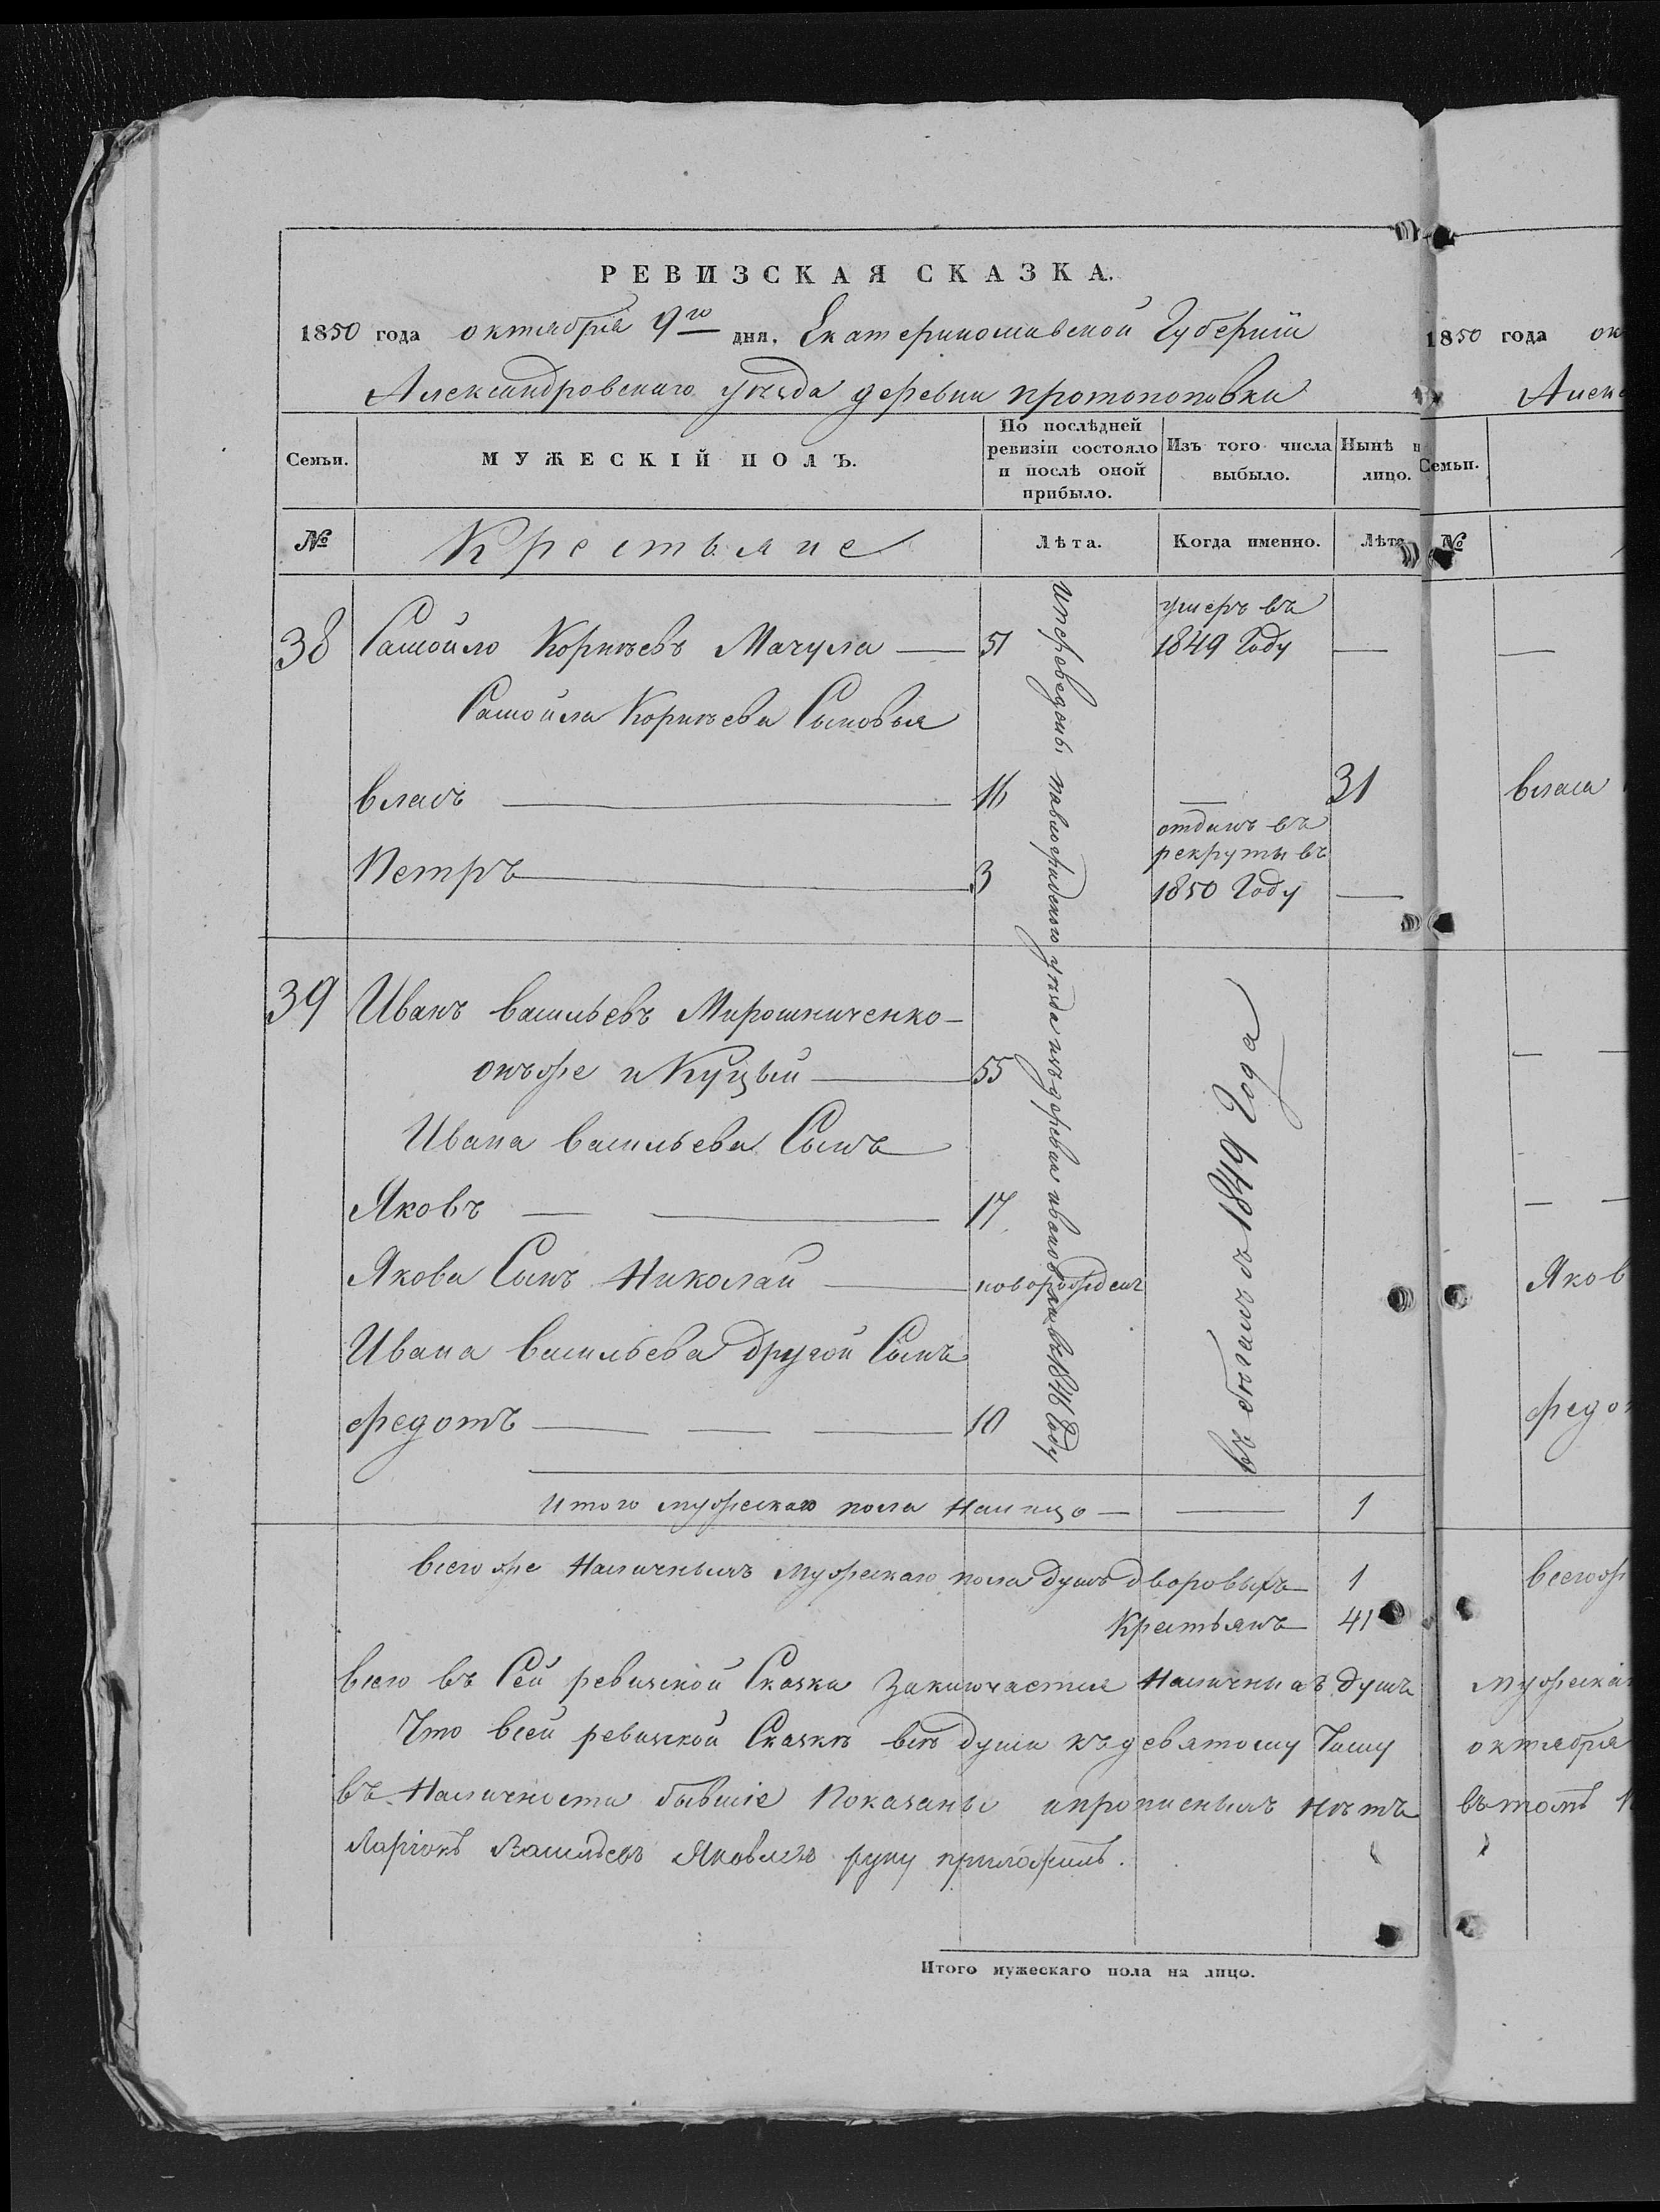 РЕВИЗСКАЯ СКАЗКА.
1850 года октября 9го дня. Екатеринославской Губернiи
Александровскаго уѣзда деревни протопоповки
Семьи.
МУЖЕСКІЙ ПОЛЪ.
По послѣдней ревизіи состояло и послѣ оной прибыло.
Изъ того числа выбыло.
Нынѣ н
лицо.
№
Крестьяне
Лѣта.
Когда именно.
Лѣта
38 Самойло Корнѣевъ Мачула — 51 умеръ въ 1849 Году —
Самойла Корнѣева Сыновья
власъ — 16 — 31
Петръ — 3 отданъ въ рекруты въ 1850 Году —
39 Иванъ васильевъ Мирошниченко —
онъже и Куцый — 55
Ивана васильева Сынъ
Яковъ — 17
Якова Сынъ Николай — новорожденъ
Ивана васильева другой Сынъ
федотъ — 10
ипереведенъ павлоградского уѣзда изъ деревни ивановки въ 1846 Году
въ бѣгахъ съ 1849 Года
Итого мужескаго пола Налицо — — 1
всего же Наличныхъ Мужескаго пола душъ дворовыхъ 1
Крестьянъ 41
всего въ Сей ревизской Сказки Заключается Наличныхъ душъ
Что всей ревизской Сказкѣ всѣ души къ девятому Числу
въ Наличности бывшіе Показаны ипрописныхъ нѣтъ
Ларіонъ Васильевъ Яковлевъ руку приложилъ.
Итого мужескаго пола на лицо.
1850 года ок
Алекс
Семьи.
№
—
власа
Яков
федо
всегож
мужескаг
октября
въ томъ